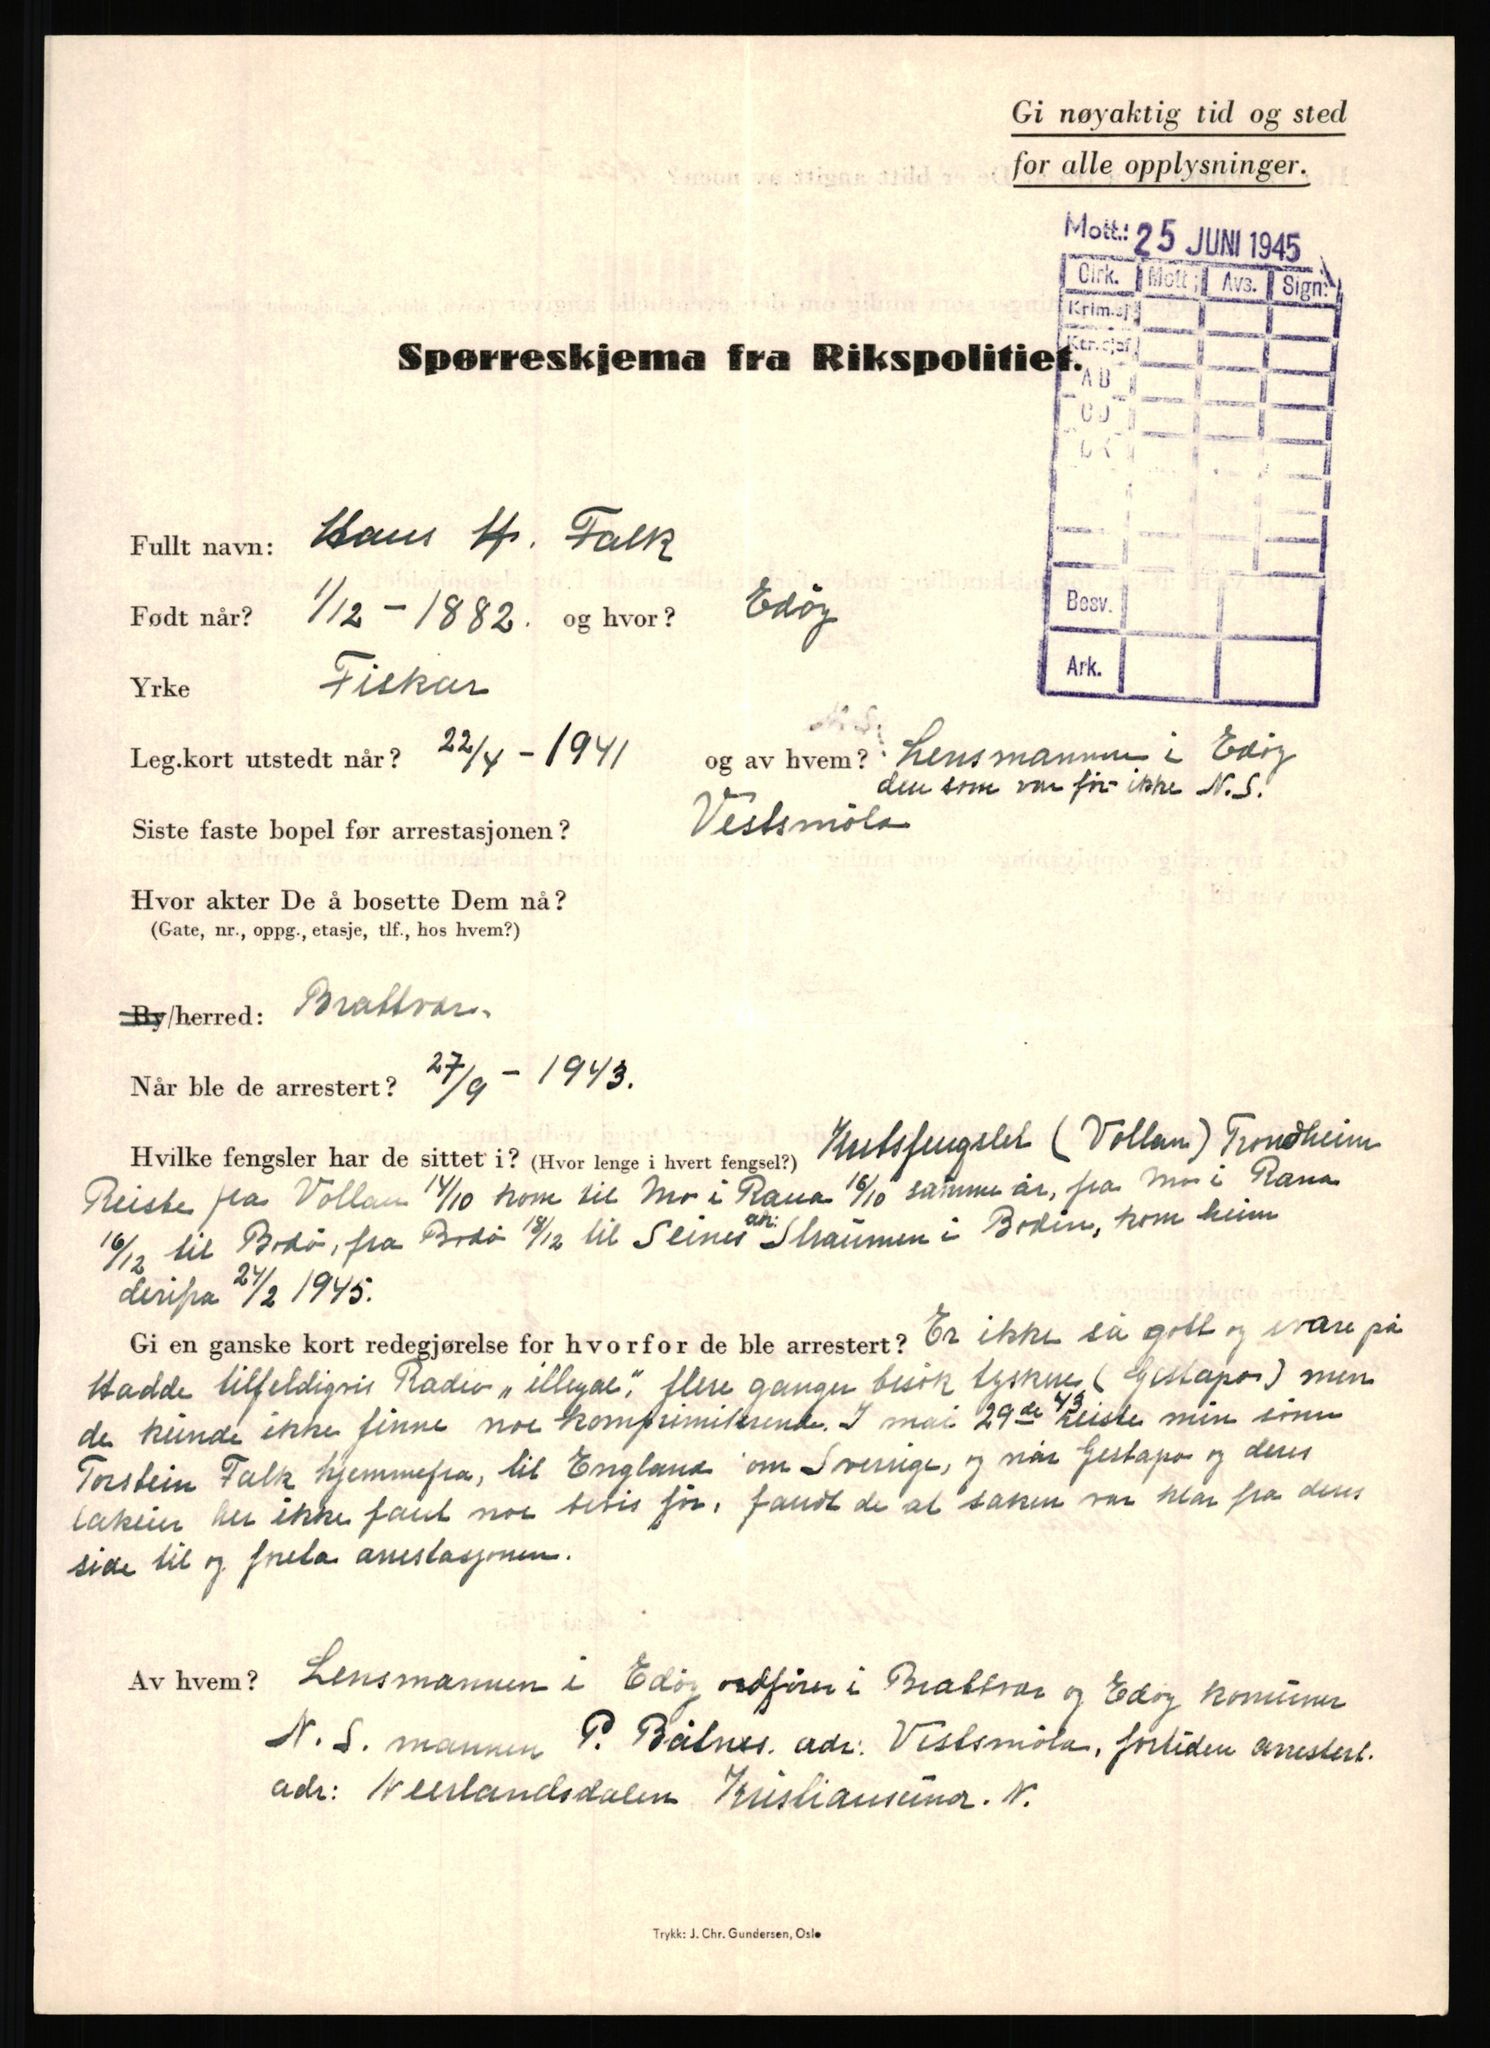 Gi nøyaktig tid og sted
for alle opplysninger.
Mott.: 25 JUNI 1945
Cirk. Mott: Avs. Sign:
Krim.sj.
Ktr.sjef.
AB
CD
Besv.
Ark.
Spørreskjema fra Rikspolitiet.
Fullt navn: Hans H. Falk
Født når? 1/12 - 1882. og hvor? Edöy
Yrke Fiskar
Leg.kort utstedt når? 22/4 - 1941 og av hvem? Lensmannen i Edöy
den som var för ikke N.S.
Siste faste bopel før arrestasjonen? Vestsmöla
Hvor akter De å bosette Dem nå?
(Gate, nr., oppg., etasje, tlf., hos hvem?)
By/herred: Brattvær.
Når ble de arrestert? 27/9 - 1943.
Hvilke fengsler har de sittet i? (Hvor lenge i hvert fengsel?) Kretsfengslet (Vollan) Trondheim
Reiste fra Vollan 14/10 kom til Mo i Rana 16/10 samme år, fra Mo i Rana
16/12 til Bodö, fra Bodö 18/12 til Seines Straumen i Bodin, kom heim
derifra 24/2 1945.
Gi en ganske kort redegjørelse for hvorfor de ble arrestert? Er ikke så gott og svare på
Hadde tilfeldigvis Radio „illegal", flere ganger besök tyskere (Gestapo) men
de kunde ikke finne noe komprimiterende. I mai 29de 43 reiste min sönn
Torstein Falk hjemmefra, til England om Sverige, og når Gestapo og deres
lakeier her ikke fant noe bevis för, fandt de at saken var klar fra deres
side til og foreta arrestasjonen.
Av hvem? Lensmannen i Edöy ordförer i Brattvær og Edöy komuner
N.S. mannen P. Båtnes. adr: Vestsmöla, fortiden arrestert.
adr: Neerlandsdalen Kristiansund. N.
Trykk: J. Chr. Gundersen, Oslo